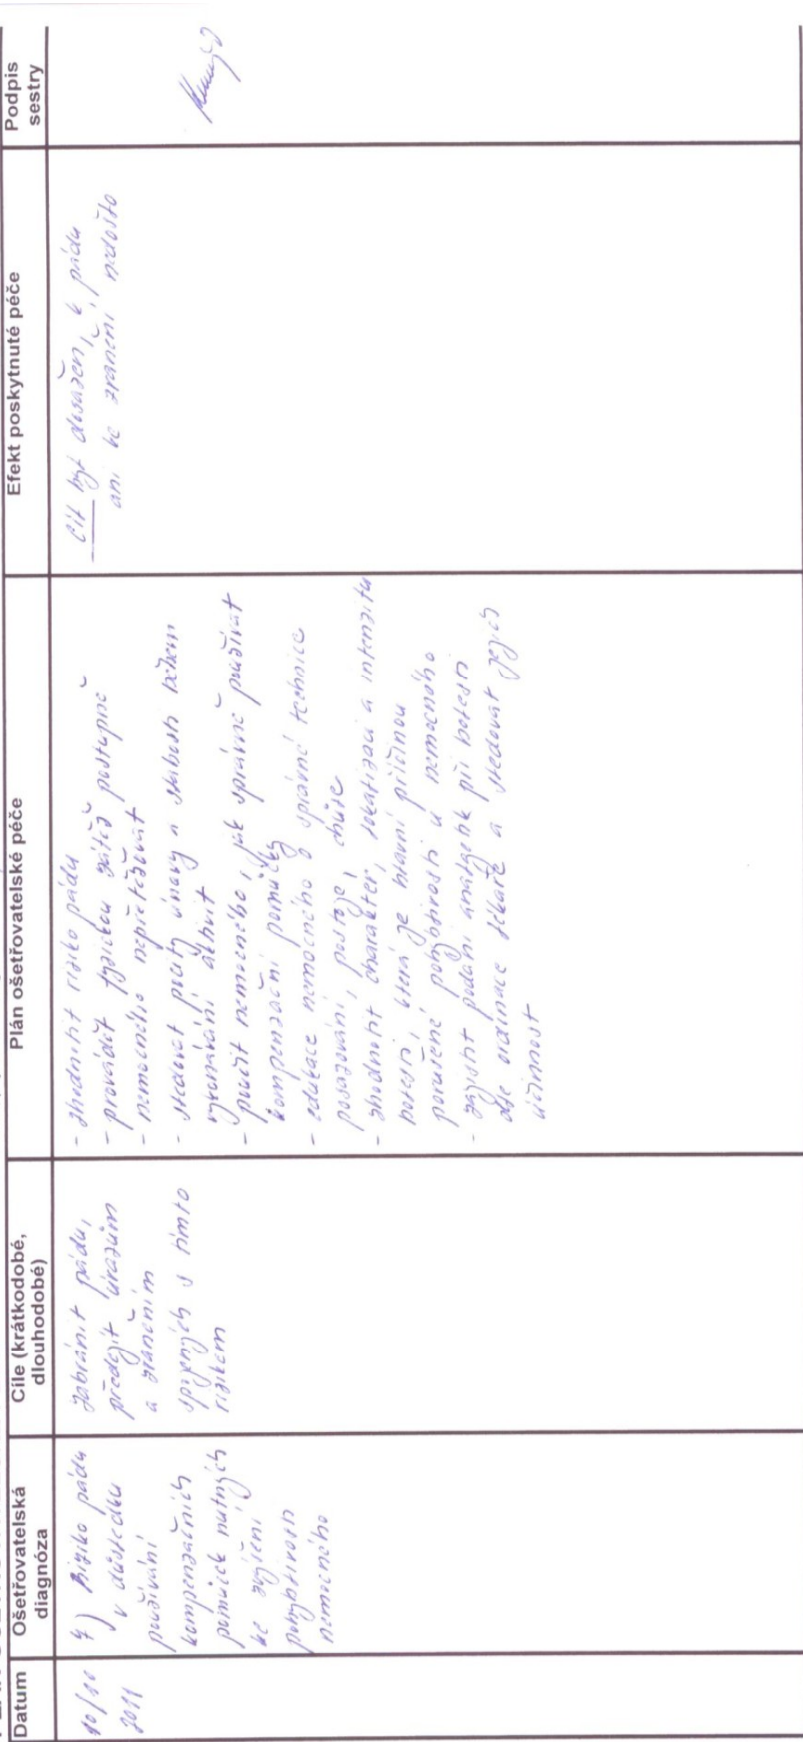 Datum
Ošetřovatelská
diagnóza
Cíle (krátkodobé,
dlouhodobé)
Plán ošetřovatelské péče
Efekt poskytnuté péče
Podpis
sestry
10/10
2011
7) Riziko pádu
v důsledku
používání
kompenzačních
pomůcek nutných
ke zvýšení
pohyblivosti
nemocného
zabránit pádu,
předejít úrazům
a zraněním
spojených s tímto
rizikem
- zhodnotit riziko pádu
- provádět fyzickou zátěž postupně
- nemocného nepřetěžovat
- sledovat pocity únavy a slabosti během
vykonávání aktivit
- poučit nemocného, jak správně používat
kompenzační pomůcky
- edukace nemocného o správné technice
posazování, postoje, chůze
- zhodnotit charakter, lokalizaci a intenzitu
bolesti, která je hlavní příčinou
porušené pohyblivosti u nemocného
- zajistit podání analgetik při bolesti
dle ordinace lékaře a sledovat jejich
účinnost
Cíl byl dosažen, k pádu
ani ke zranění nedošlo